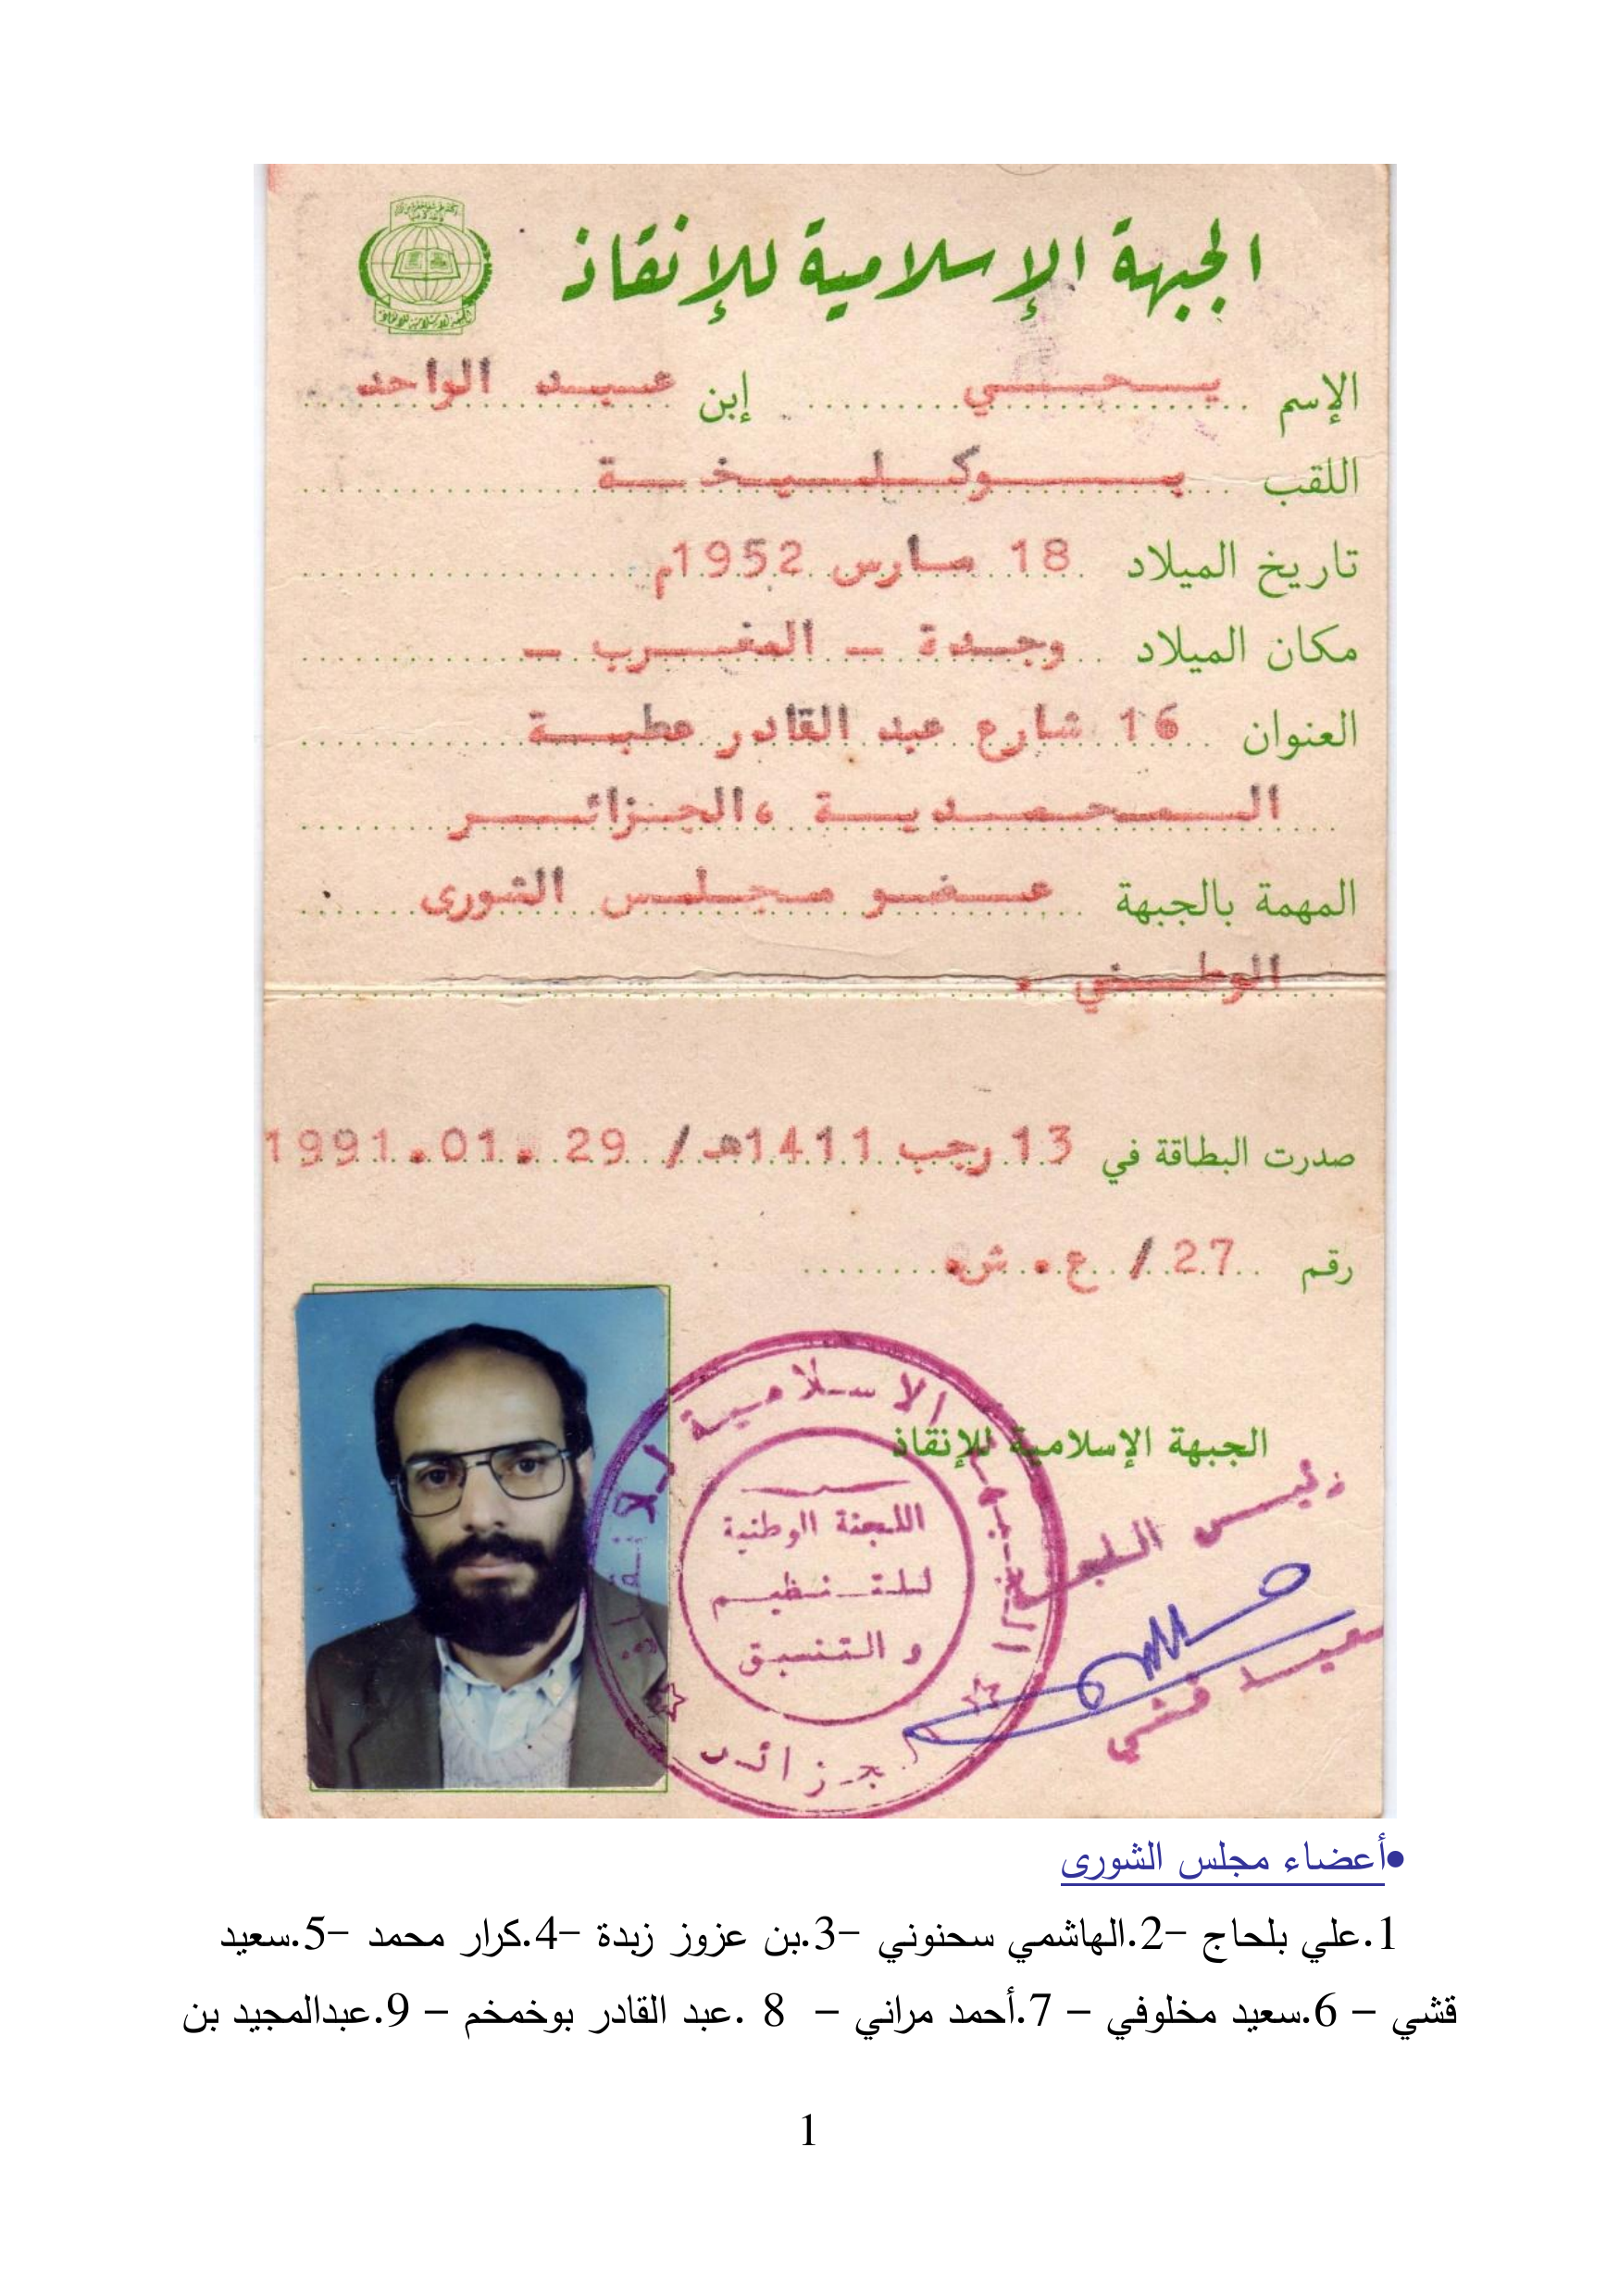 الجبهة الإسلامية للإنقاذ
الإسم يحيي إبن عبد الواحد
اللقب بوكليخة
تاريخ الميلاد 18 مارس 1952م
مكان الميلاد وجدة - المغرب -
العنوان 16 شارع عبد القادر عطبة
المحمدية ،الجزائر
المهمة بالجبهة عضو مجلس الشورى
الوطني .
صدرت البطاقة في 13 رجب 1411هـ / 29 .01.1991
رقم 27 / ع . ش.
الجبهة الإسلامية للإنقاذ
الجبهة الاسلامية للانقاذ
اللجنة الوطنية
للتنظيم
و التنسيق
رئيس
سعيد قشي
•أعضاء مجلس الشورى
1.علي بلحاج -2.الهاشمي سحنوني -3.بن عزوز زبدة -4.كرار محمد -5.سعيد
قشي – 6.سعيد مخلوفي – 7.أحمد مراني – 8 .عبد القادر بوخمخم – 9.عبدالمجيد بن
1